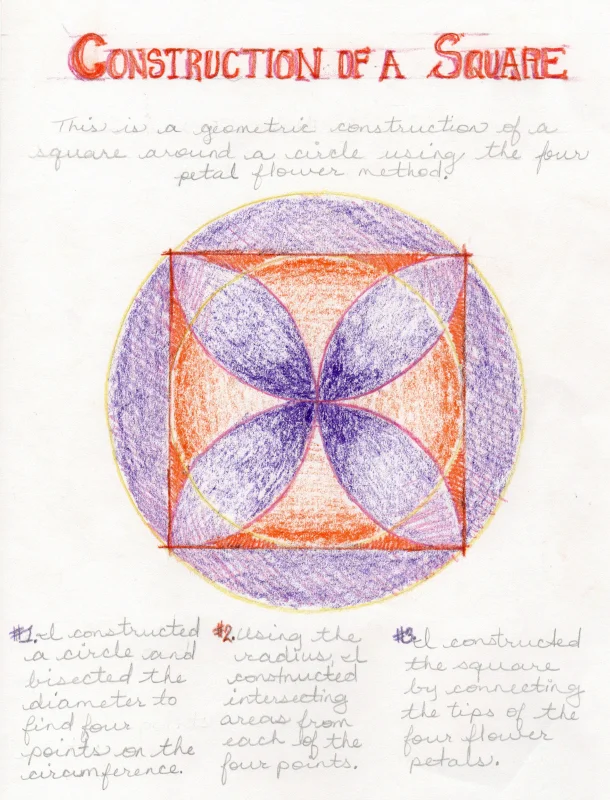 CONSTRUCTION OF A SQUARE
This is a geometric construction of a
square around a circle using the four
petal flower method.
#1. I constructed
a circle and
bisected the
diameter to
find four
points on the
circumference.
#2. Using the
radius, I
constructed
intersecting
areas from
each of the
four points.
#3. I constructed
the square
by connecting
the tips of the
four flower
petals.